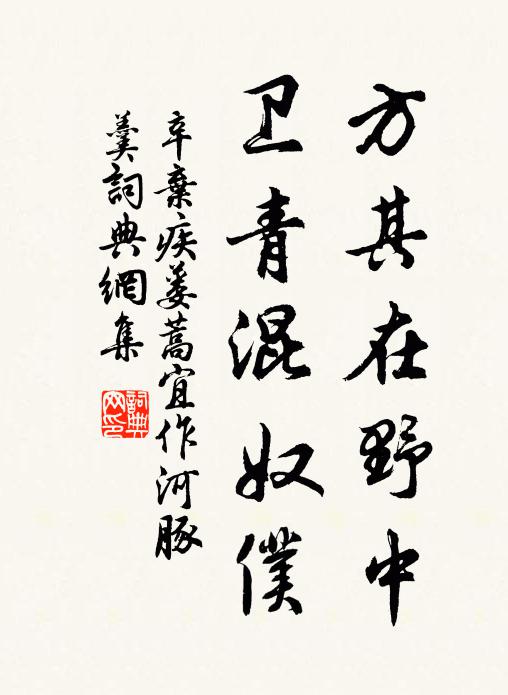 方其在野中
卫青混奴僕
辛棄疾蒌蒿宜作河豚
羹詞典網集
詞典
网印